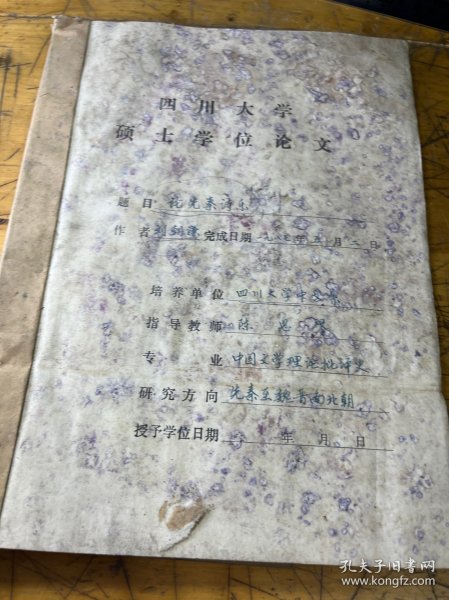 四川大学
硕士学位论文
题目 说先秦诗乐
作者 刘剑 完成日期 一九八七年五月二日
培养单位 四川大学中文系
指导教师 陈
专业 中国文学理论批评史
研究方向 先秦至魏晋南北朝
授予学位日期 年 月 日
孔夫子旧书网
www.kongfz.com